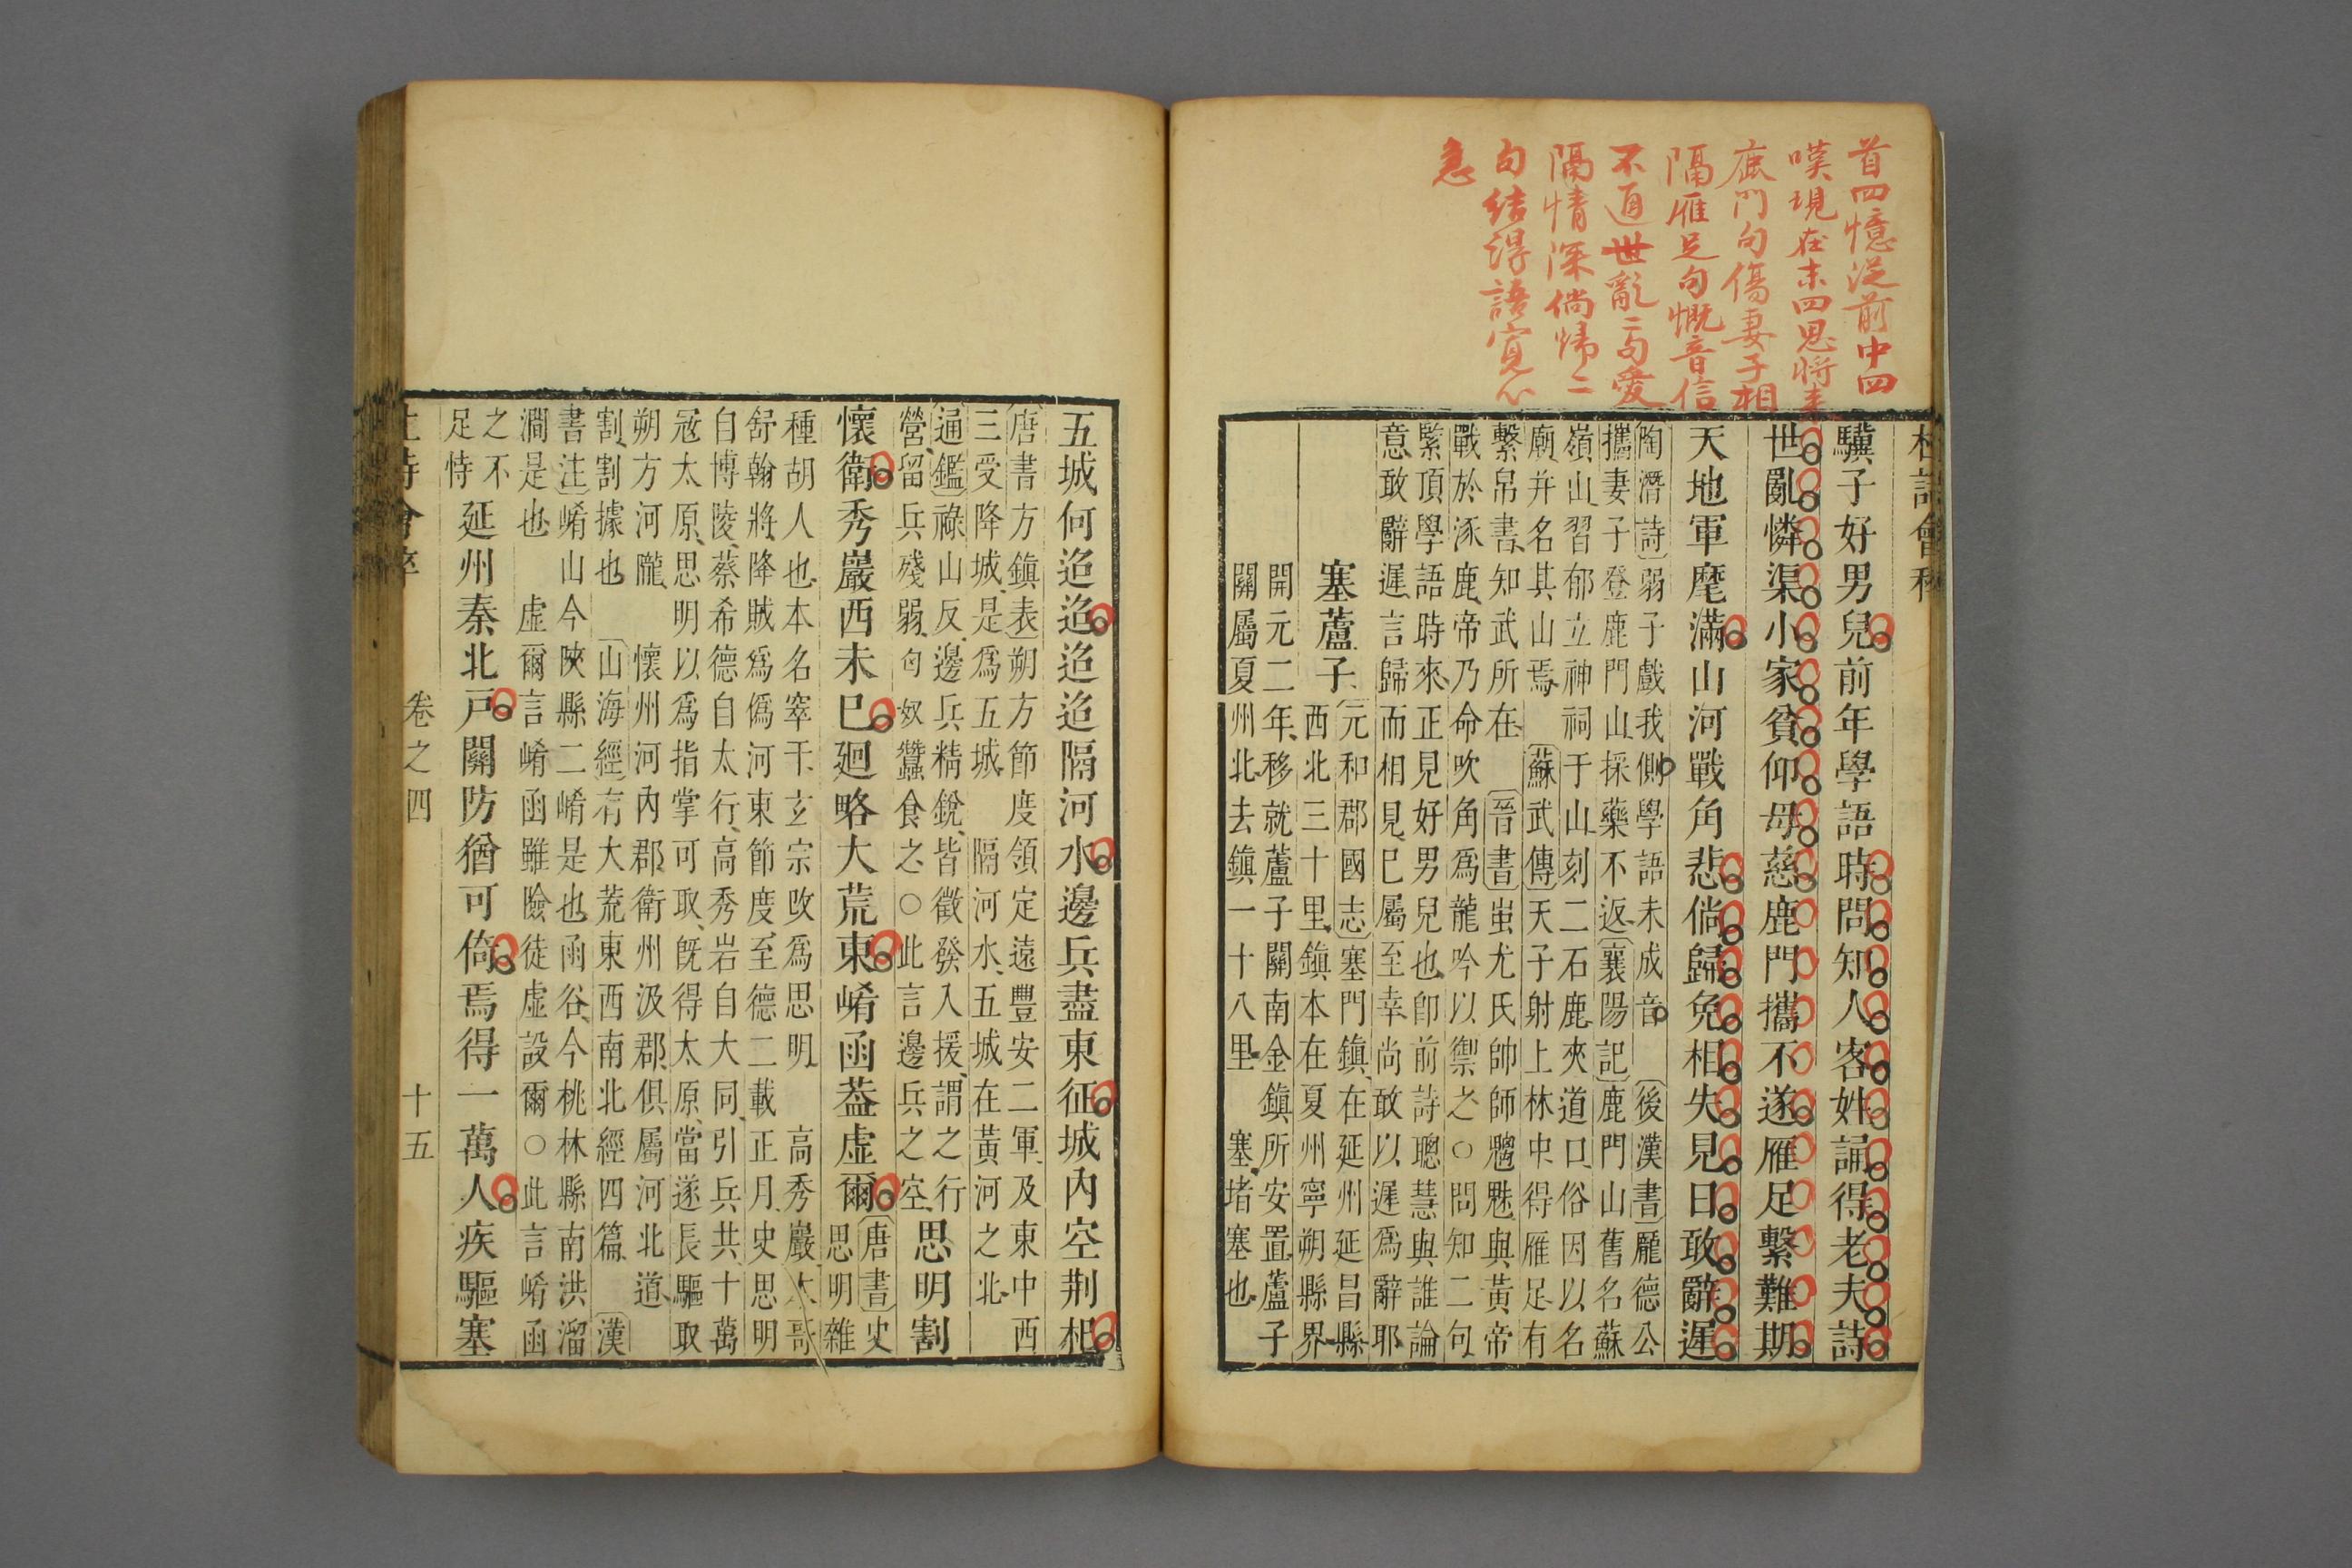 首四憶從前中四
嘆現在末四思將來
鹿門句傷妻子相
隔雁足句慨音信
不通世亂二句愛
隔情深倘歸二
句結得語寬心
急
驥子好男兒前年學語時問知人客姓誦得老夫詩
世亂憐渠小家貧仰母慈鹿門攜不遂雁足繫難期
天地軍麾滿山河戰角悲倘歸免相失見日敢辭遲
陶潛詩弱子戲我側學語未成音 後漢書龐德公
攜妻子登鹿門山採藥不返襄陽記鹿門山舊名蘇
嶺山習郁立神祠于山刻二石鹿夾道口俗因以名
廟并名其山焉 蘇武傳天子射上林中得雁足有
繫帛書知武所在 晉書蚩尤氏帥師魑魅與黃帝
戰於涿鹿帝乃命吹角為龍吟以禦之○問知二句
緊頂學語時來正見好男兒也卽前詩聰慧與誰論
意敢辭遲言歸而相見已屬至幸尚敢以遲為辭耶
塞蘆子
元和郡國志塞門鎮在延州延昌縣
西北三十里鎮本在夏州寧朔縣界
開元二年移就蘆子關南金鎮所安置蘆子
關屬夏州北去鎮一十八里 塞堵塞也
五城何迢迢迢迢隔河水邊兵盡東征城內空荆杞
唐書方鎮表朔方節度領定遠豐安二軍及東中西
三受降城是為五城 隔河水五城在黃河之北
通鑑祿山反邊兵精銳皆徵發入援謂之行
營留兵殘弱匈奴蠶食之○此言邊兵之空
思明割
懷衛秀巖西未已廻略大荒東崤函葢虛爾
唐書史
思明雜
種胡人也本名窣干玄宗改為思明 高秀巖本哥
舒翰將降賊為偽河東節度至德二載正月史思明
自博陵蔡希德自太行高秀岩自大同引兵共十萬
寇太原思明以為指掌可取既得太原當遂長驅取
朔方河隴 懷州河內郡衛州汲郡俱屬河北道
割割據也 山海經有大荒東西南北經四篇 漢
書注崤山今陝縣二崤是也函谷今桃林縣南洪溜
澗是也 虛爾言崤函雖險徒虛設爾○此言崤函
之不
足恃
延州秦北戶關防猶可倚焉得一萬人疾驅塞
卷之四 十五